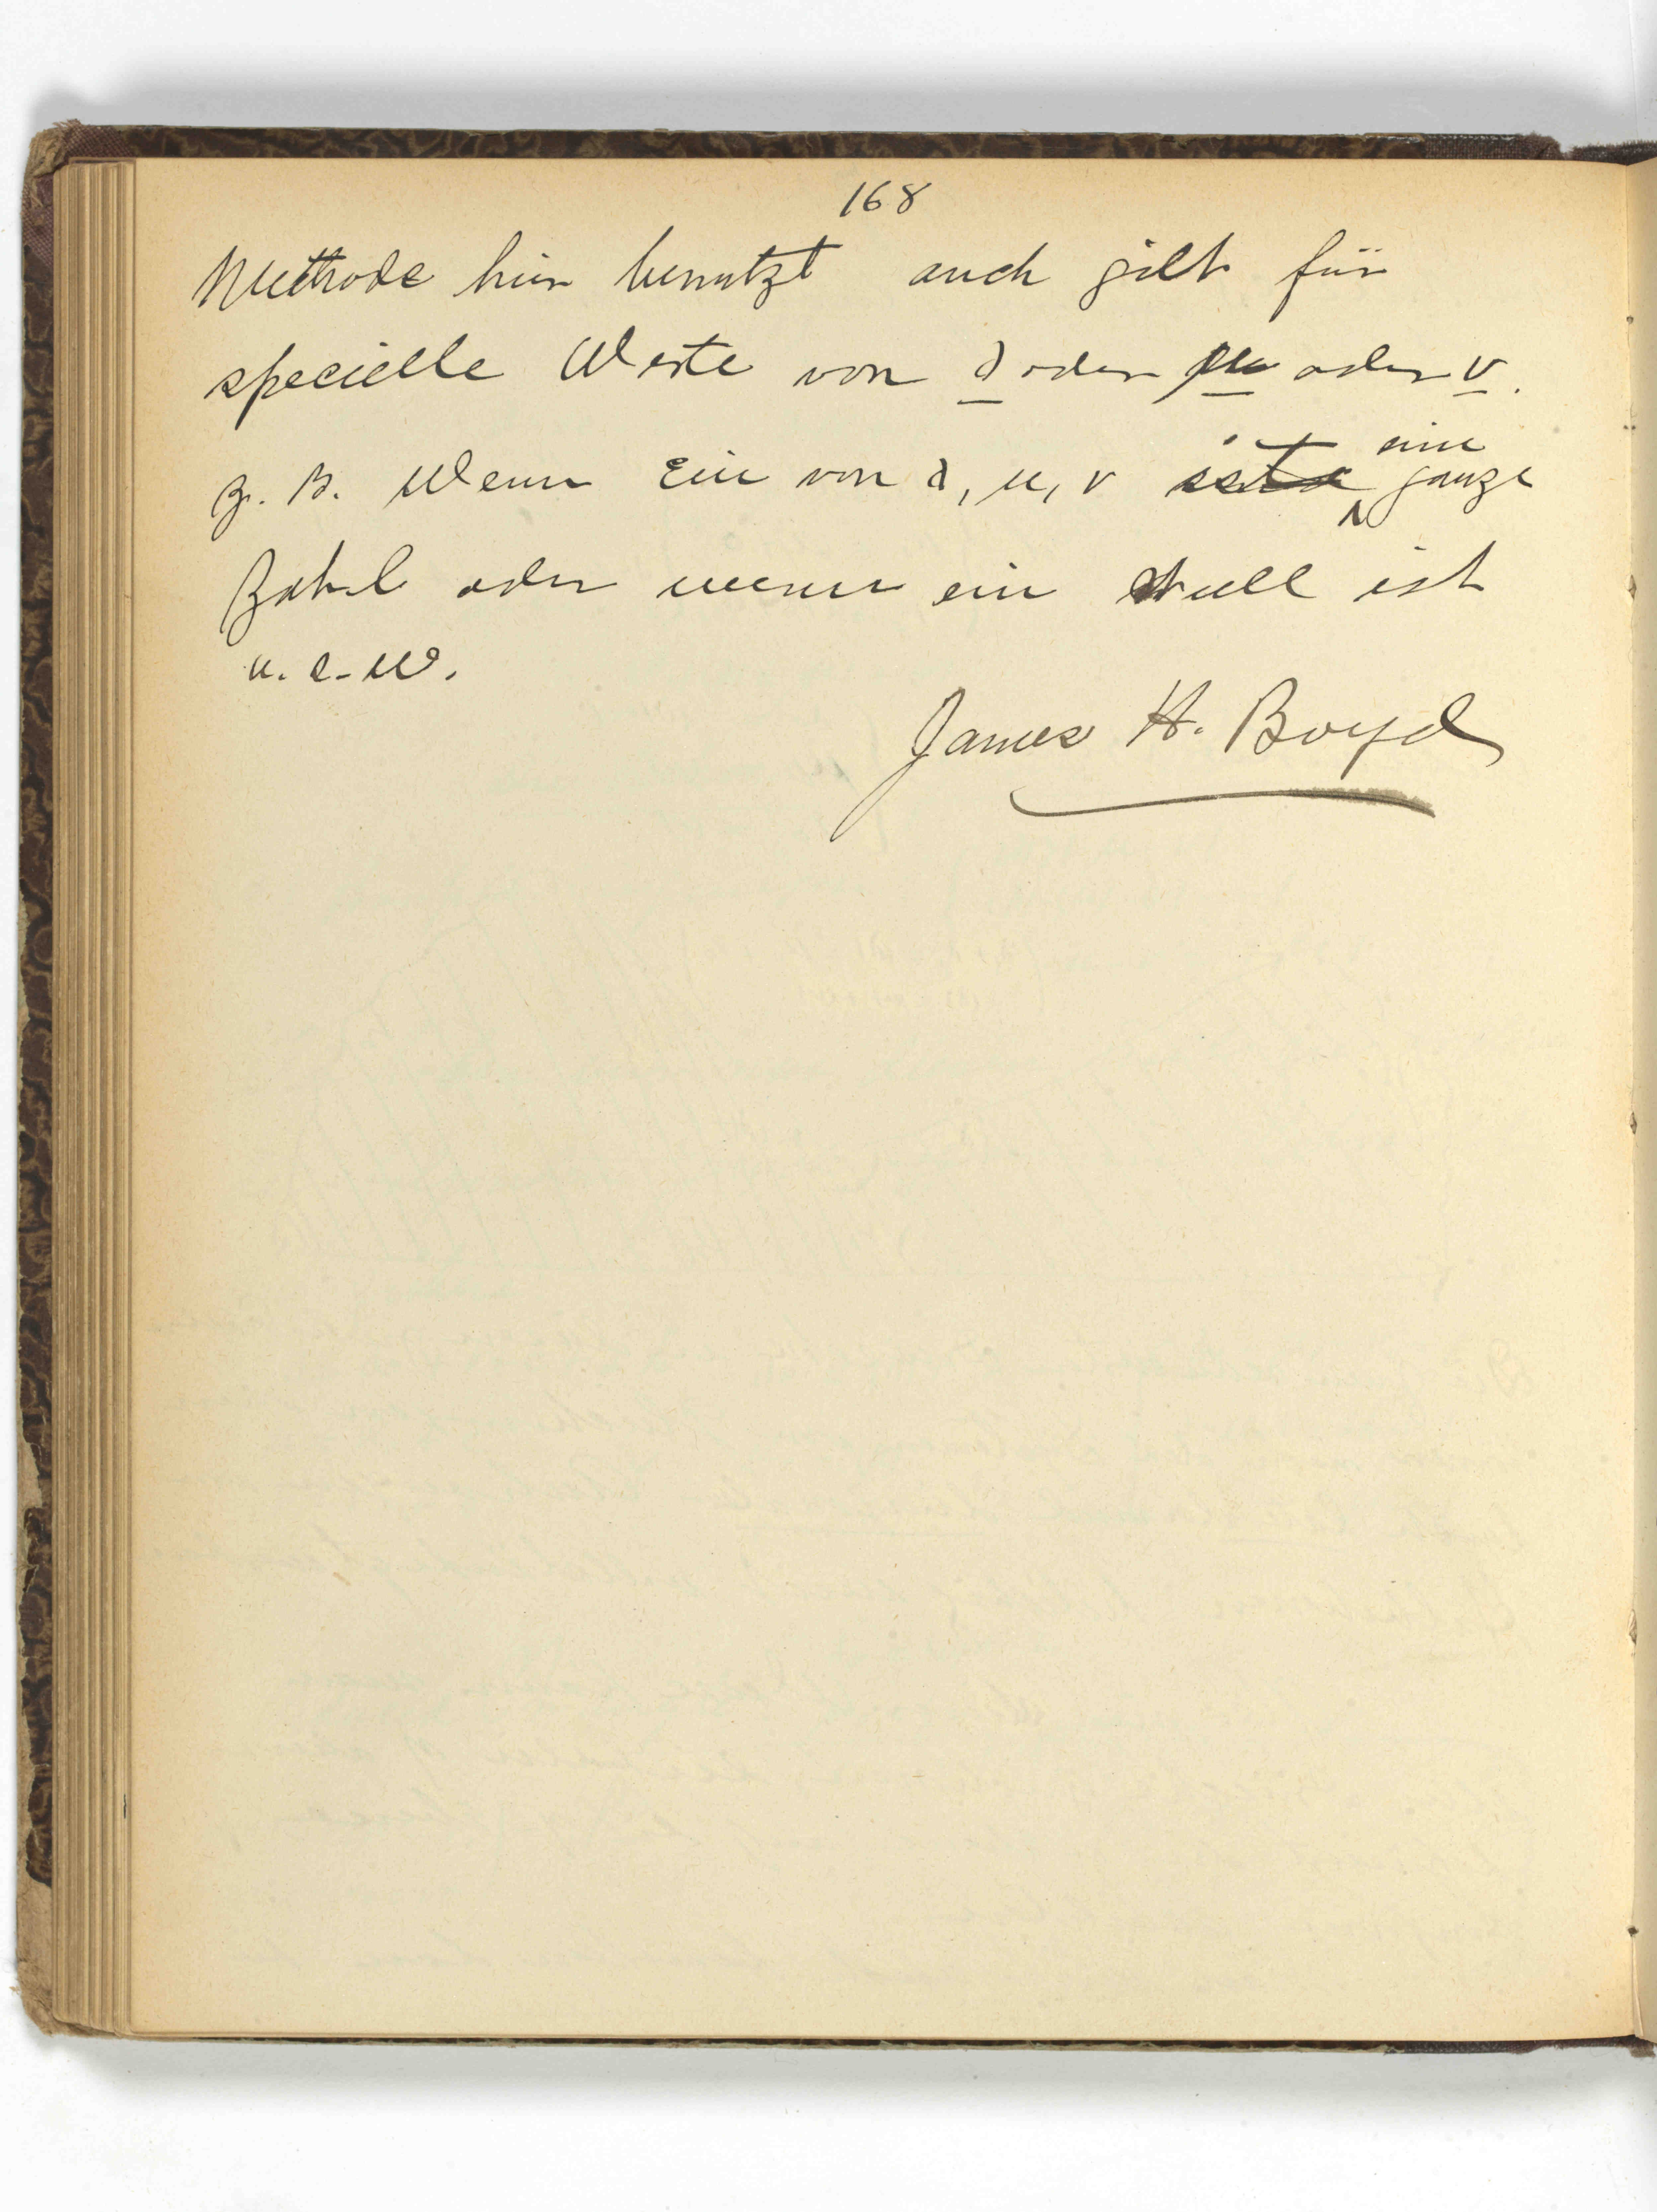 168
Methode hier benutzt auch gilt für
specielle Werte von λ oder μ oder ν.
z. B. Wenn Ein von λ, μ, ν eine ganze
Zahl oder wenn ein Null ist
u. s. w.
James H. Boyd